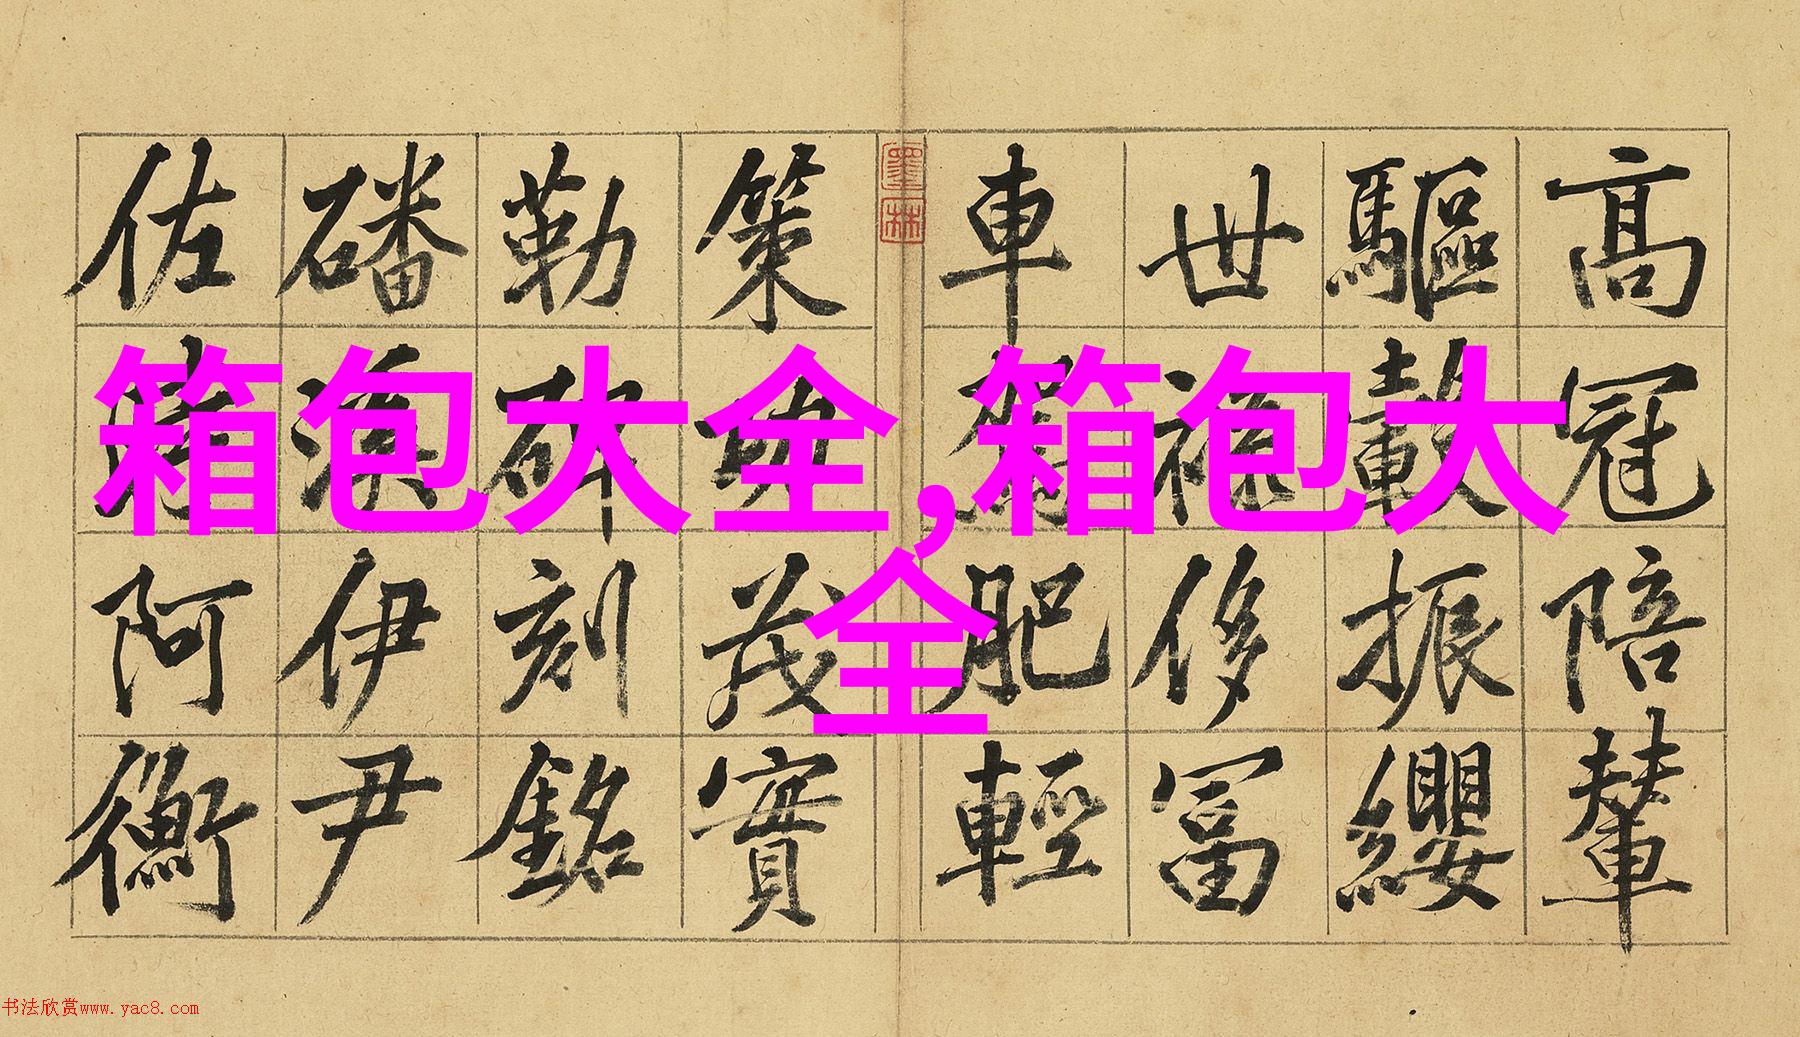 箱包大全,箱包大
全
高冠陪輦
驅轂振纓
世祿侈冨
車駕肥輕
墨林
策功茂實
勒碑刻銘
磻溪伊尹
佐時阿衡
书法欣赏www.yac8.com